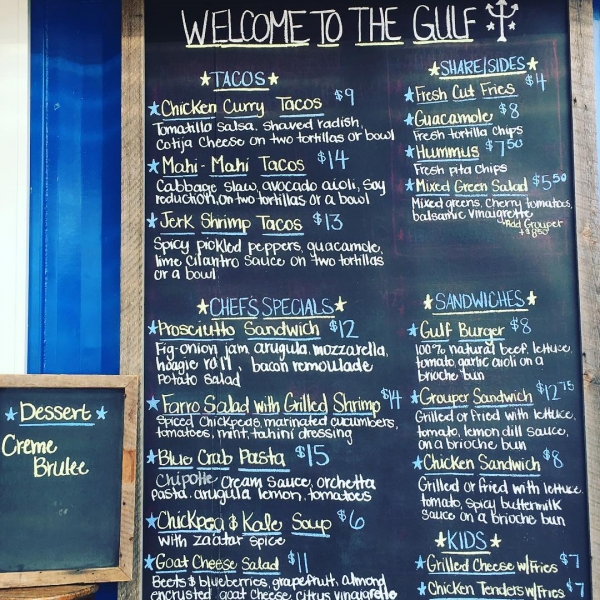 WELCOME TO THE GULF
TACOS
Chicken Curry Tacos $9
Tomatillo Salsa, shaved radish,
Cotija Cheese on two tortillas or bowl
Mahi-Mahi Tacos $14
Cabbage slaw, avocado aioli, soy
reduction, on two tortillas or a bowl
Jerk Shrimp Tacos $13
Spicy pickled peppers, guacamole,
lime cilantro sauce on two tortillas
or a bowl
CHEF'S SPECIALS
Prosciutto Sandwich $12
Fig-onion jam, arugula, mozzarella,
hoagie roll, bacon remoulade
Potato Salad
Farro Salad with Grilled Shrimp $14
Spiced chickpeas, marinated cucumbers,
tomatoes, mint, tahini dressing
Blue Crab Pasta $15
Chipotle Cream Sauce, orchetta
pasta, arugula, lemon, tomatoes
Chickpea & Kale Soup $6
with za'atar spice
Goat Cheese Salad $11
Beets & blueberries, grapefruit, almond
encrusted goat cheese, citrus vinaigrette
SHARE/SIDES
Fresh Cut Fries $4
Guacamole $8
Fresh tortilla chips
Hummus $7.50
Fresh pita chips
Mixed Green Salad $5.50
Mixed greens, Cherry tomatoes,
balsamic vinaigrette
*Add Grouper
+$8.50
SANDWICHES
Gulf Burger $8
100% natural beef, lettuce,
tomato, garlic aioli on a
brioche bun
Grouper Sandwich $12.75
Grilled or fried with lettuce,
tomato, lemon dill sauce,
on a brioche bun
Chicken Sandwich $8
Grilled or fried with lettuce
tomato, spicy buttermilk
sauce on a brioche bun
KIDS
Grilled Cheese w/Fries $7
Chicken Tenders w/Fries $7
Dessert
Creme
Brulee